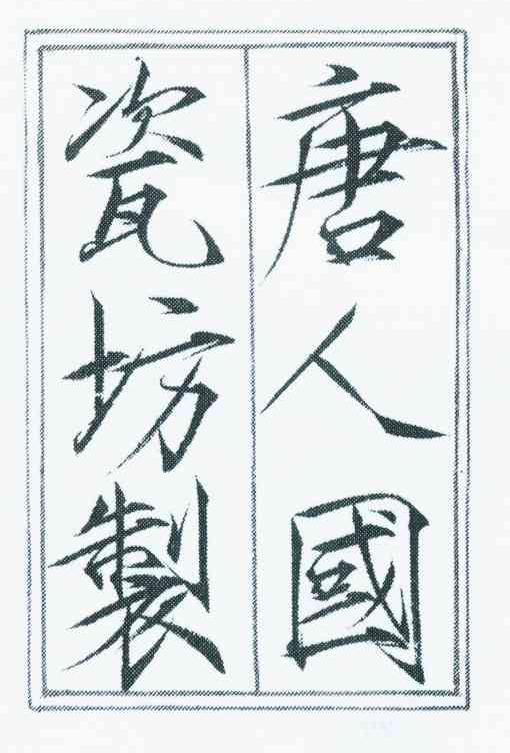 唐人國
瓷坊製